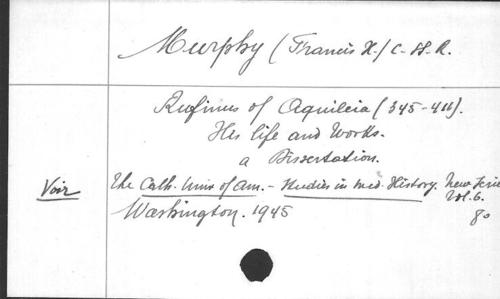 Murphy (Francis X.) C. SS. R.
Rufinus of Aquileia (345-411).
His life and Works.
a Dissertation.
Voir The Cath. Univ. of Am. - Studies in Med. History. New Serie
Vol. 6.
Washington. 1945 8o